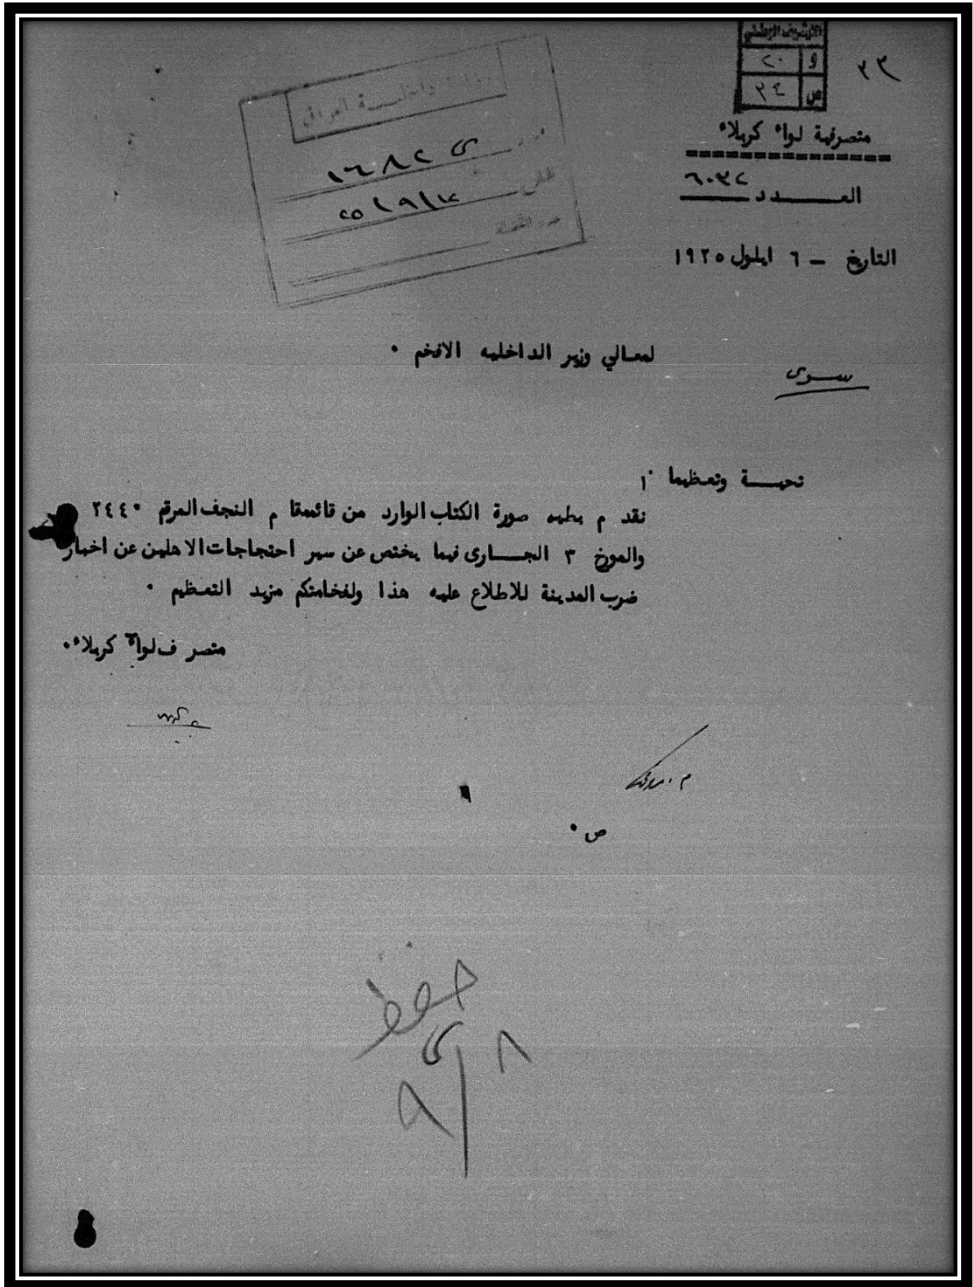 و ٢٠
ص ٣٤
٣٣
متصرفية لواء كربلاء
العـــدد ٦٠٣٢
التاريخ - ٦ ايلول ١٩٢٥
وزارة داخلية العراق
لمعالي وزير الداخليه الافخم ٠
ســرى
تحيــة وتعظيما ا٠
نقد م بطيه صورة الكتاب الوارد من قائمقا م النجف المرقم ٢٤٤٠
والمورخ ٣ الجــارى فيما يختص عن سير احتجاجات الاهلين عن اخبار
ضرب المدينة للاطلاع عليه هذا ولفخامتكم مزيد التعظيم ٠
متصر ف لواء كربلاء٠
ص ٠
حفظ
٩/٨